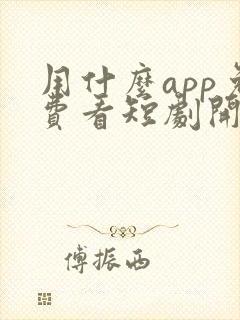 用什麼app免
費看短劇開
傅振西